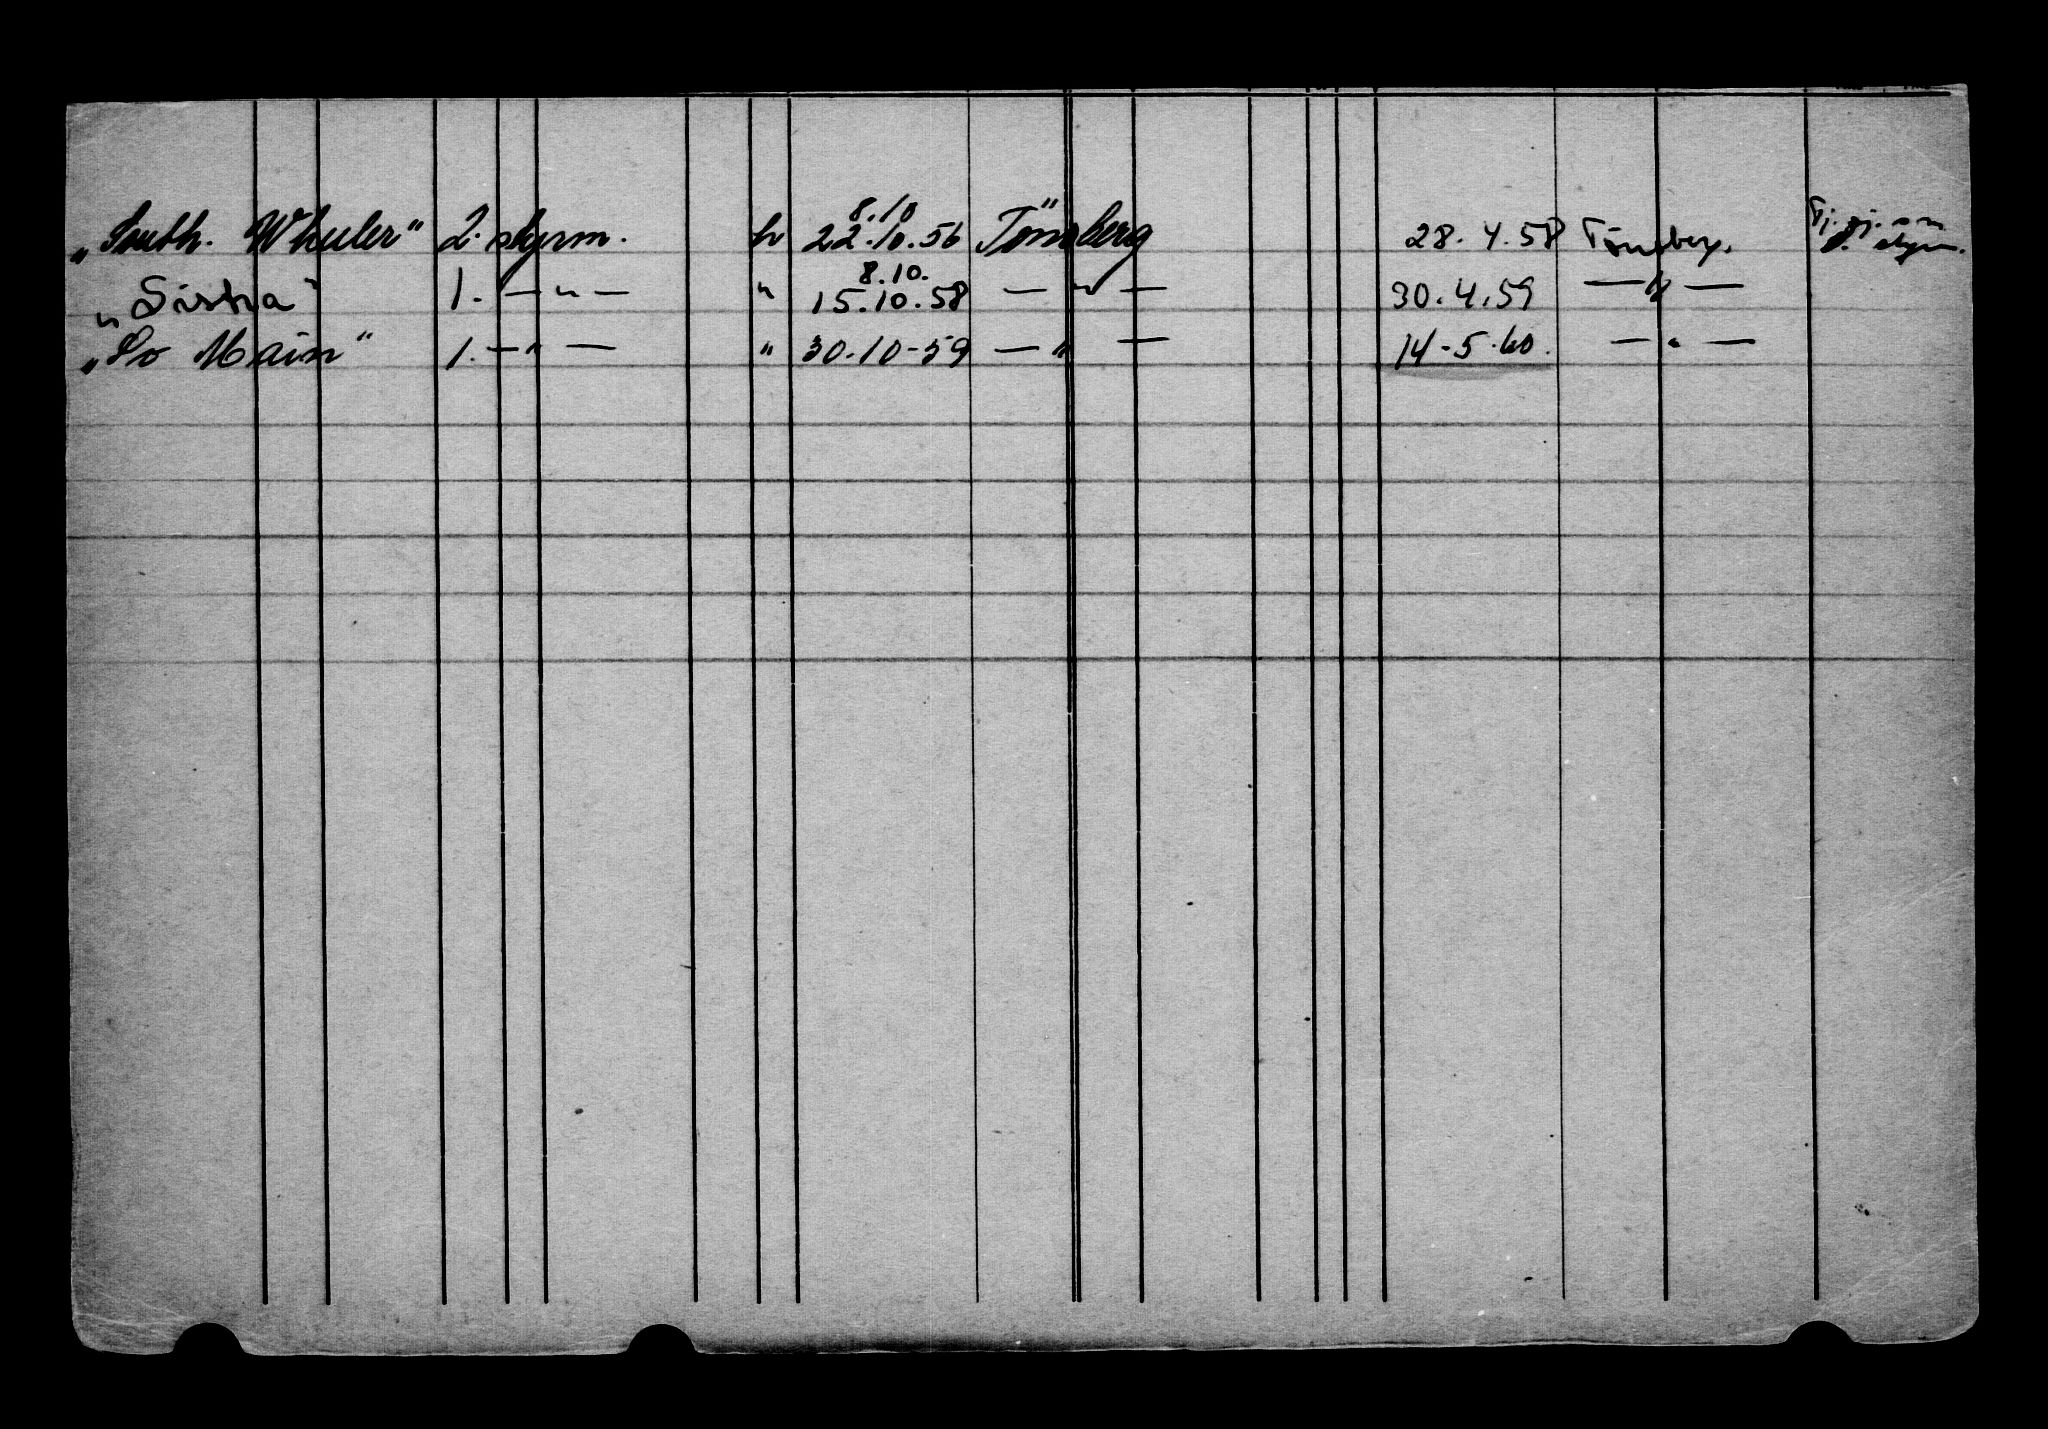 8.10
„South. Wheeler" 2. styrm. h 22.10.56 Tönsberg 28.4.58 Tönsberg. Tj. gj. som
styrm.
8.10.
„Sistra" 1. — " — " 15.10.58 — " — 30.4.59 — " —
„So Main" 1. — " — " 30-10-59 — " — 14-5-60. — " —